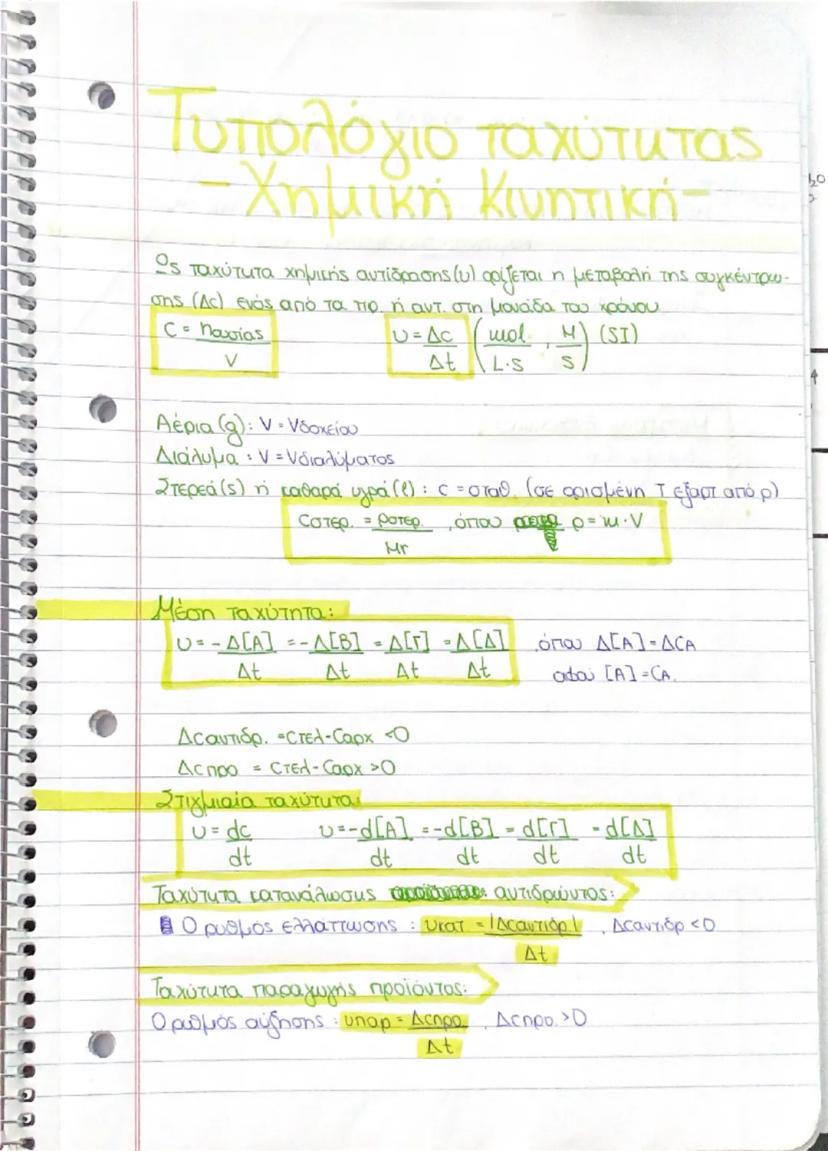 Τυπολόγιο ταχύτητας
-Χημική Κινητική-
Ως ταχύτητα χημικής αντίδρασης (υ) ορίζεται η μεταβολή της συγκέντρω-
σης (Δc) ενός από τα πρ. ή αντ. στη μονάδα του χρόνου
C = nουσίας / V   υ = Δc / Δt (mol / L·s , M / s) (SI)
Αέρια (g): V = Vδοχείου
Διάλυμα : V = Vδιαλύματος
Στερεά (s) ή καθαρά υγρά (l) : c = σταθ. (σε ορισμένη T εξαρτ από ρ)
Cστερ. = ρστερ. / Mr , όπου ρ = m · V
Μέση ταχύτητα:
υ = -Δ[Α] / Δt = -Δ[Β] / Δt = Δ[Γ] / Δt = Δ[Δ] / Δt , όπου Δ[Α] = ΔCA
αφού [Α] = CA.
Δcαντιδρ. = Cτελ-Cαρχ <0
Δcπρο = Cτελ-Cαρχ >0
Στιγμιαία ταχύτητα:
υ = dc / dt   υ = -d[Α] / dt = -d[Β] / dt = d[Γ] / dt = d[Δ] / dt
Ταχύτητα κατανάλωσης αντιδρώντος:
Ο ρυθμός ελλάττωσης : υκατ = |Δcαντιδρ.| / Δt , Δcαντιδρ <0
Ταχύτητα παραγωγής προϊόντος:
Ο ρυθμός αύξησης : υπαρ = Δcπρο. / Δt , Δcπρο. >0